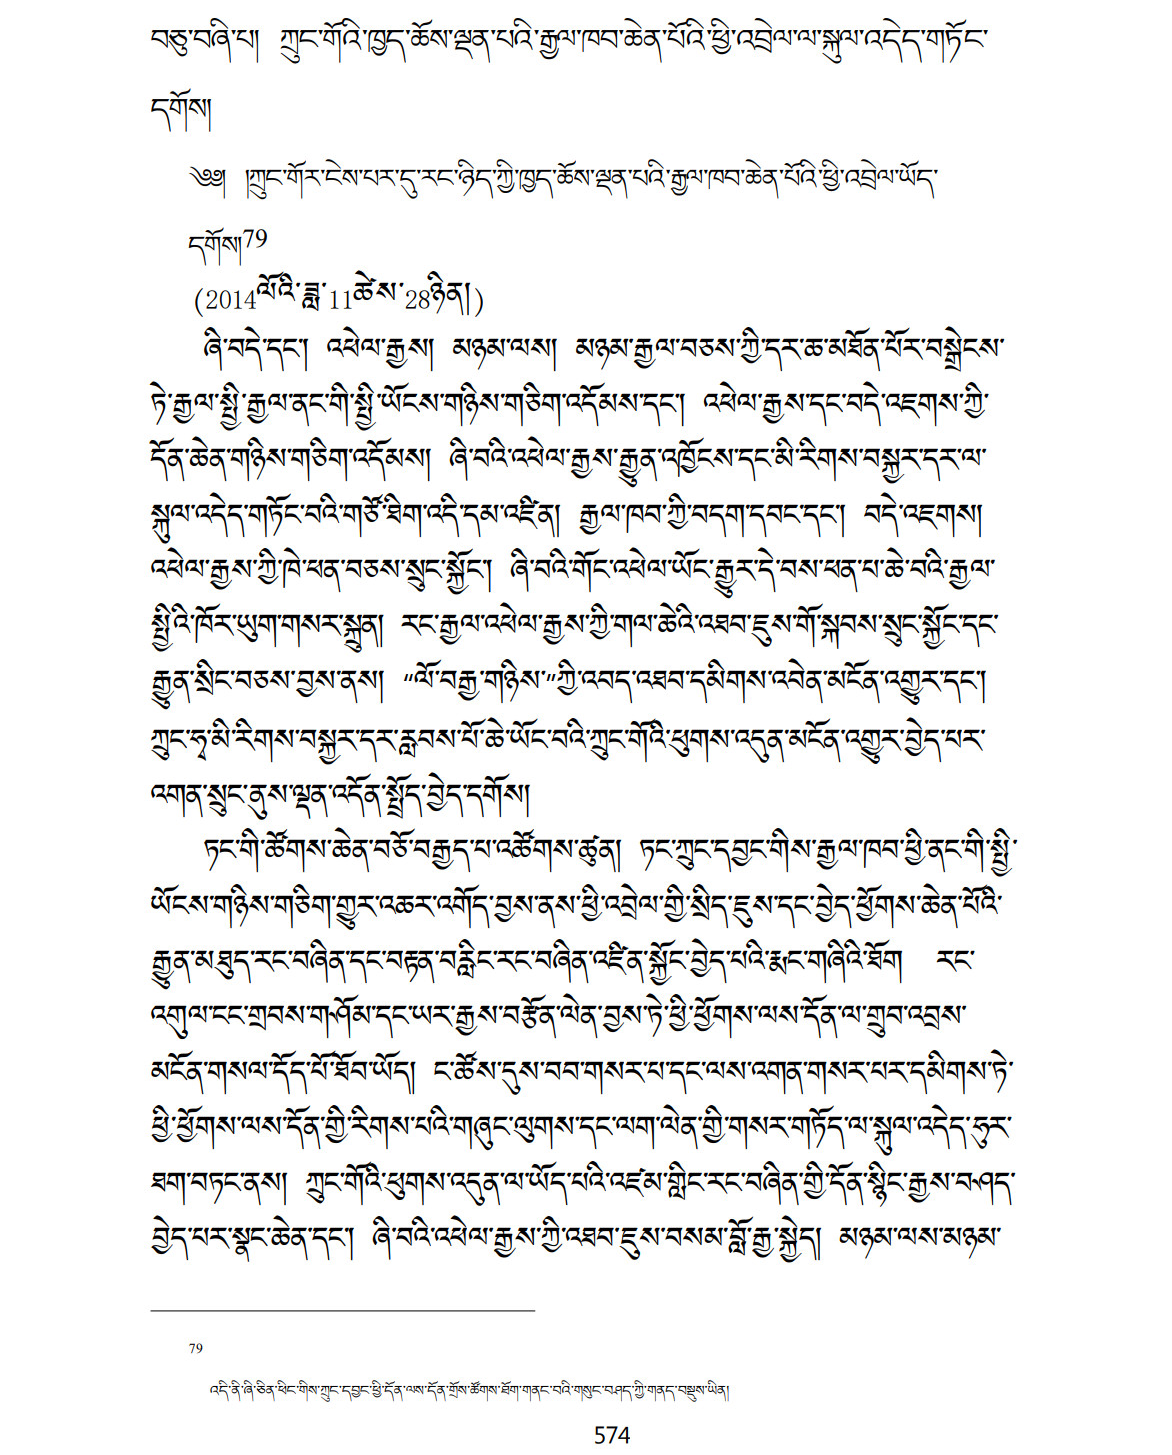 བཅུ་བཞི་པ། ཀྲུང་གོའི་ཁྱད་ཆོས་ལྡན་པའི་རྒྱལ་ཁབ་ཆེན་པོའི་ཕྱི་འབྲེལ་ལ་སྐུལ་འདེད་གཏོང་
དགོས།
༄༅། །ཀྲུང་གོར་ངེས་པར་དུ་རང་ཉིད་ཀྱི་ཁྱད་ཆོས་ལྡན་པའི་རྒྱལ་ཁབ་ཆེན་པོའི་ཕྱི་འབྲེལ་ཡོད་
དགོས།79
(2014ལོའི་ཟླ་11ཚེས་28ཉིན།)
ཞི་བདེ་དང༌། འཕེལ་རྒྱས། མཉམ་ལས། མཉམ་རྒྱལ་བཅས་ཀྱི་དར་ཆ་མཐོན་པོར་བསྒྲེངས་
ཏེ་རྒྱལ་སྤྱི་རྒྱལ་ནང་གི་སྤྱི་ཡོངས་གཉིས་གཅིག་འདོམས་དང༌། འཕེལ་རྒྱས་དང་བདེ་འཇགས་ཀྱི་
དོན་ཆེན་གཉིས་གཅིག་འདོམས། ཞི་བའི་འཕེལ་རྒྱས་རྒྱུན་འཁྱོངས་དང་མི་རིགས་བསྐྱར་དར་ལ་
སྐུལ་འདེད་གཏོང་བའི་གཙོ་ཐིག་འདི་དམ་འཛིན། རྒྱལ་ཁབ་ཀྱི་བདག་དབང་དང༌། བདེ་འཇགས།
འཕེལ་རྒྱས་ཀྱི་ཁེ་ཕན་བཅས་སྲུང་སྐྱོང༌། ཞི་བའི་གོང་འཕེལ་ཡོང་རྒྱུར་དེ་བས་ཕན་པ་ཆེ་བའི་རྒྱལ་
སྤྱིའི་ཁོར་ཡུག་གསར་སྐྲུན། རང་རྒྱལ་འཕེལ་རྒྱས་ཀྱི་གལ་ཆེའི་འཐབ་ཇུས་གོ་སྐབས་སྲུང་སྐྱོང་དང་
རྒྱུན་སྲིང་བཅས་བྱས་ནས། “ལོ་བརྒྱ་གཉིས་”ཀྱི་འབད་འཐབ་དམིགས་འབེན་མངོན་འགྱུར་དང༌།
ཀྲུང་ཧྭ་མི་རིགས་བསྐྱར་དར་རླབས་པོ་ཆེ་ཡོང་བའི་ཀྲུང་གོའི་ཕུགས་འདུན་མངོན་འགྱུར་བྱེད་པར་
འགན་སྲུང་ནུས་ལྡན་འདོན་སྤྲོད་བྱེད་དགོས།
ཏང་གི་ཚོགས་ཆེན་བཅོ་བརྒྱད་པ་འཚོགས་ཚུན། ཏང་ཀྲུང་དབྱང་གིས་རྒྱལ་ཁབ་ཕྱི་ནང་གི་སྤྱི་
ཡོངས་གཉིས་གཅིག་གྱུར་འཆར་འགོད་བྱས་ནས་ཕྱི་འབྲེལ་གྱི་སྲིད་ཇུས་དང་བྱེད་ཕྱོགས་ཆེན་པོའི་
རྒྱུན་མཐུད་རང་བཞིན་དང་བརྟན་བརླིང་རང་བཞིན་འཛིན་སྐྱོང་བྱེད་པའི་རྨང་གཞིའི་ཐོག རང་
འགུལ་ངང་གྲབས་གཤོམ་དང་ཡར་རྒྱས་བརྩོན་ལེན་བྱས་ཏེ་ཕྱི་ཕྱོགས་ལས་དོན་ལ་གྲུབ་འབྲས་
མངོན་གསལ་དོད་པོ་ཐོབ་ཡོད། ང་ཚོས་དུས་བབ་གསར་པ་དང་ལས་འགན་གསར་པར་དམིགས་ཏེ་
ཕྱི་ཕྱོགས་ལས་དོན་གྱི་རིགས་པའི་གཞུང་ལུགས་དང་ལག་ལེན་གྱི་གསར་གཏོད་ལ་སྐུལ་འདེད་ཧུར་
ཐག་བཏང་ནས། ཀྲུང་གོའི་ཕུགས་འདུན་ལ་ཡོད་པའི་འཛམ་གླིང་རང་བཞིན་གྱི་དོན་སྙིང་རྒྱས་བཤད་
བྱེད་པར་སྣང་ཆེན་དང༌། ཞི་བའི་འཕེལ་རྒྱས་ཀྱི་འཐབ་ཇུས་བསམ་བློ་རྒྱ་སྐྱེད། མཉམ་ལས་མཉམ་
79
འདི་ནི་ཞི་ཅིན་ཕིང་གིས་ཀྲུང་དབྱང་ཕྱི་དོན་ལས་དོན་གྲོས་ཚོགས་ཐོག་གནང་བའི་གསུང་བཤད་ཀྱི་གནད་བསྡུས་ཡིན།
574